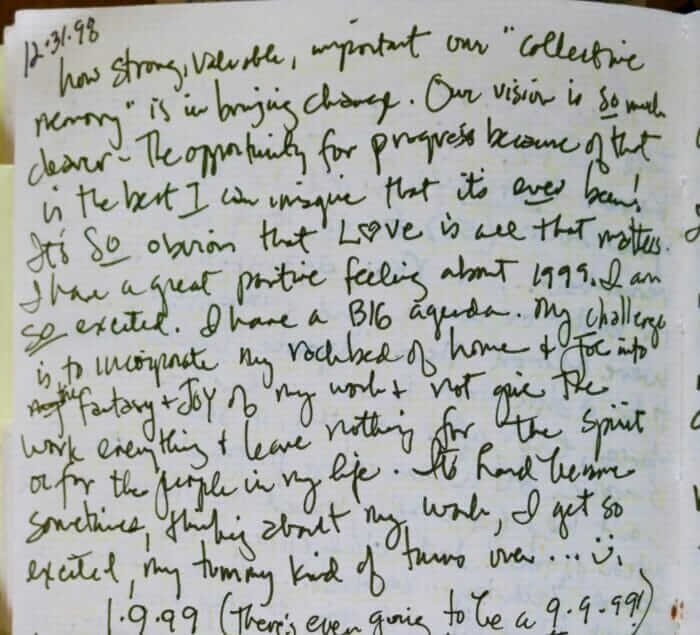 12.31.98
how strong, valuable, important our "collective
memory" is in bringing change. Our vision is so much
clearer - The opportunity for progress because of that
is the best I can imagine that its ever been!
It's SO obvious that LOVE is all that matters.
I have a great positive feeling about 1999. I am
so excited. I have a BIG agenda. My challenge
is to incorporate my rockbed of home + Joe into
the fantasy + JOY of my work + not give the
work everything + leave nothing for the spirit
or for the people in my life. It's hard because
sometimes, thinking about my work, I get so
excited, my tummy kind of turns over...
1.9.99 (There's even going to be a 9.9.99!)